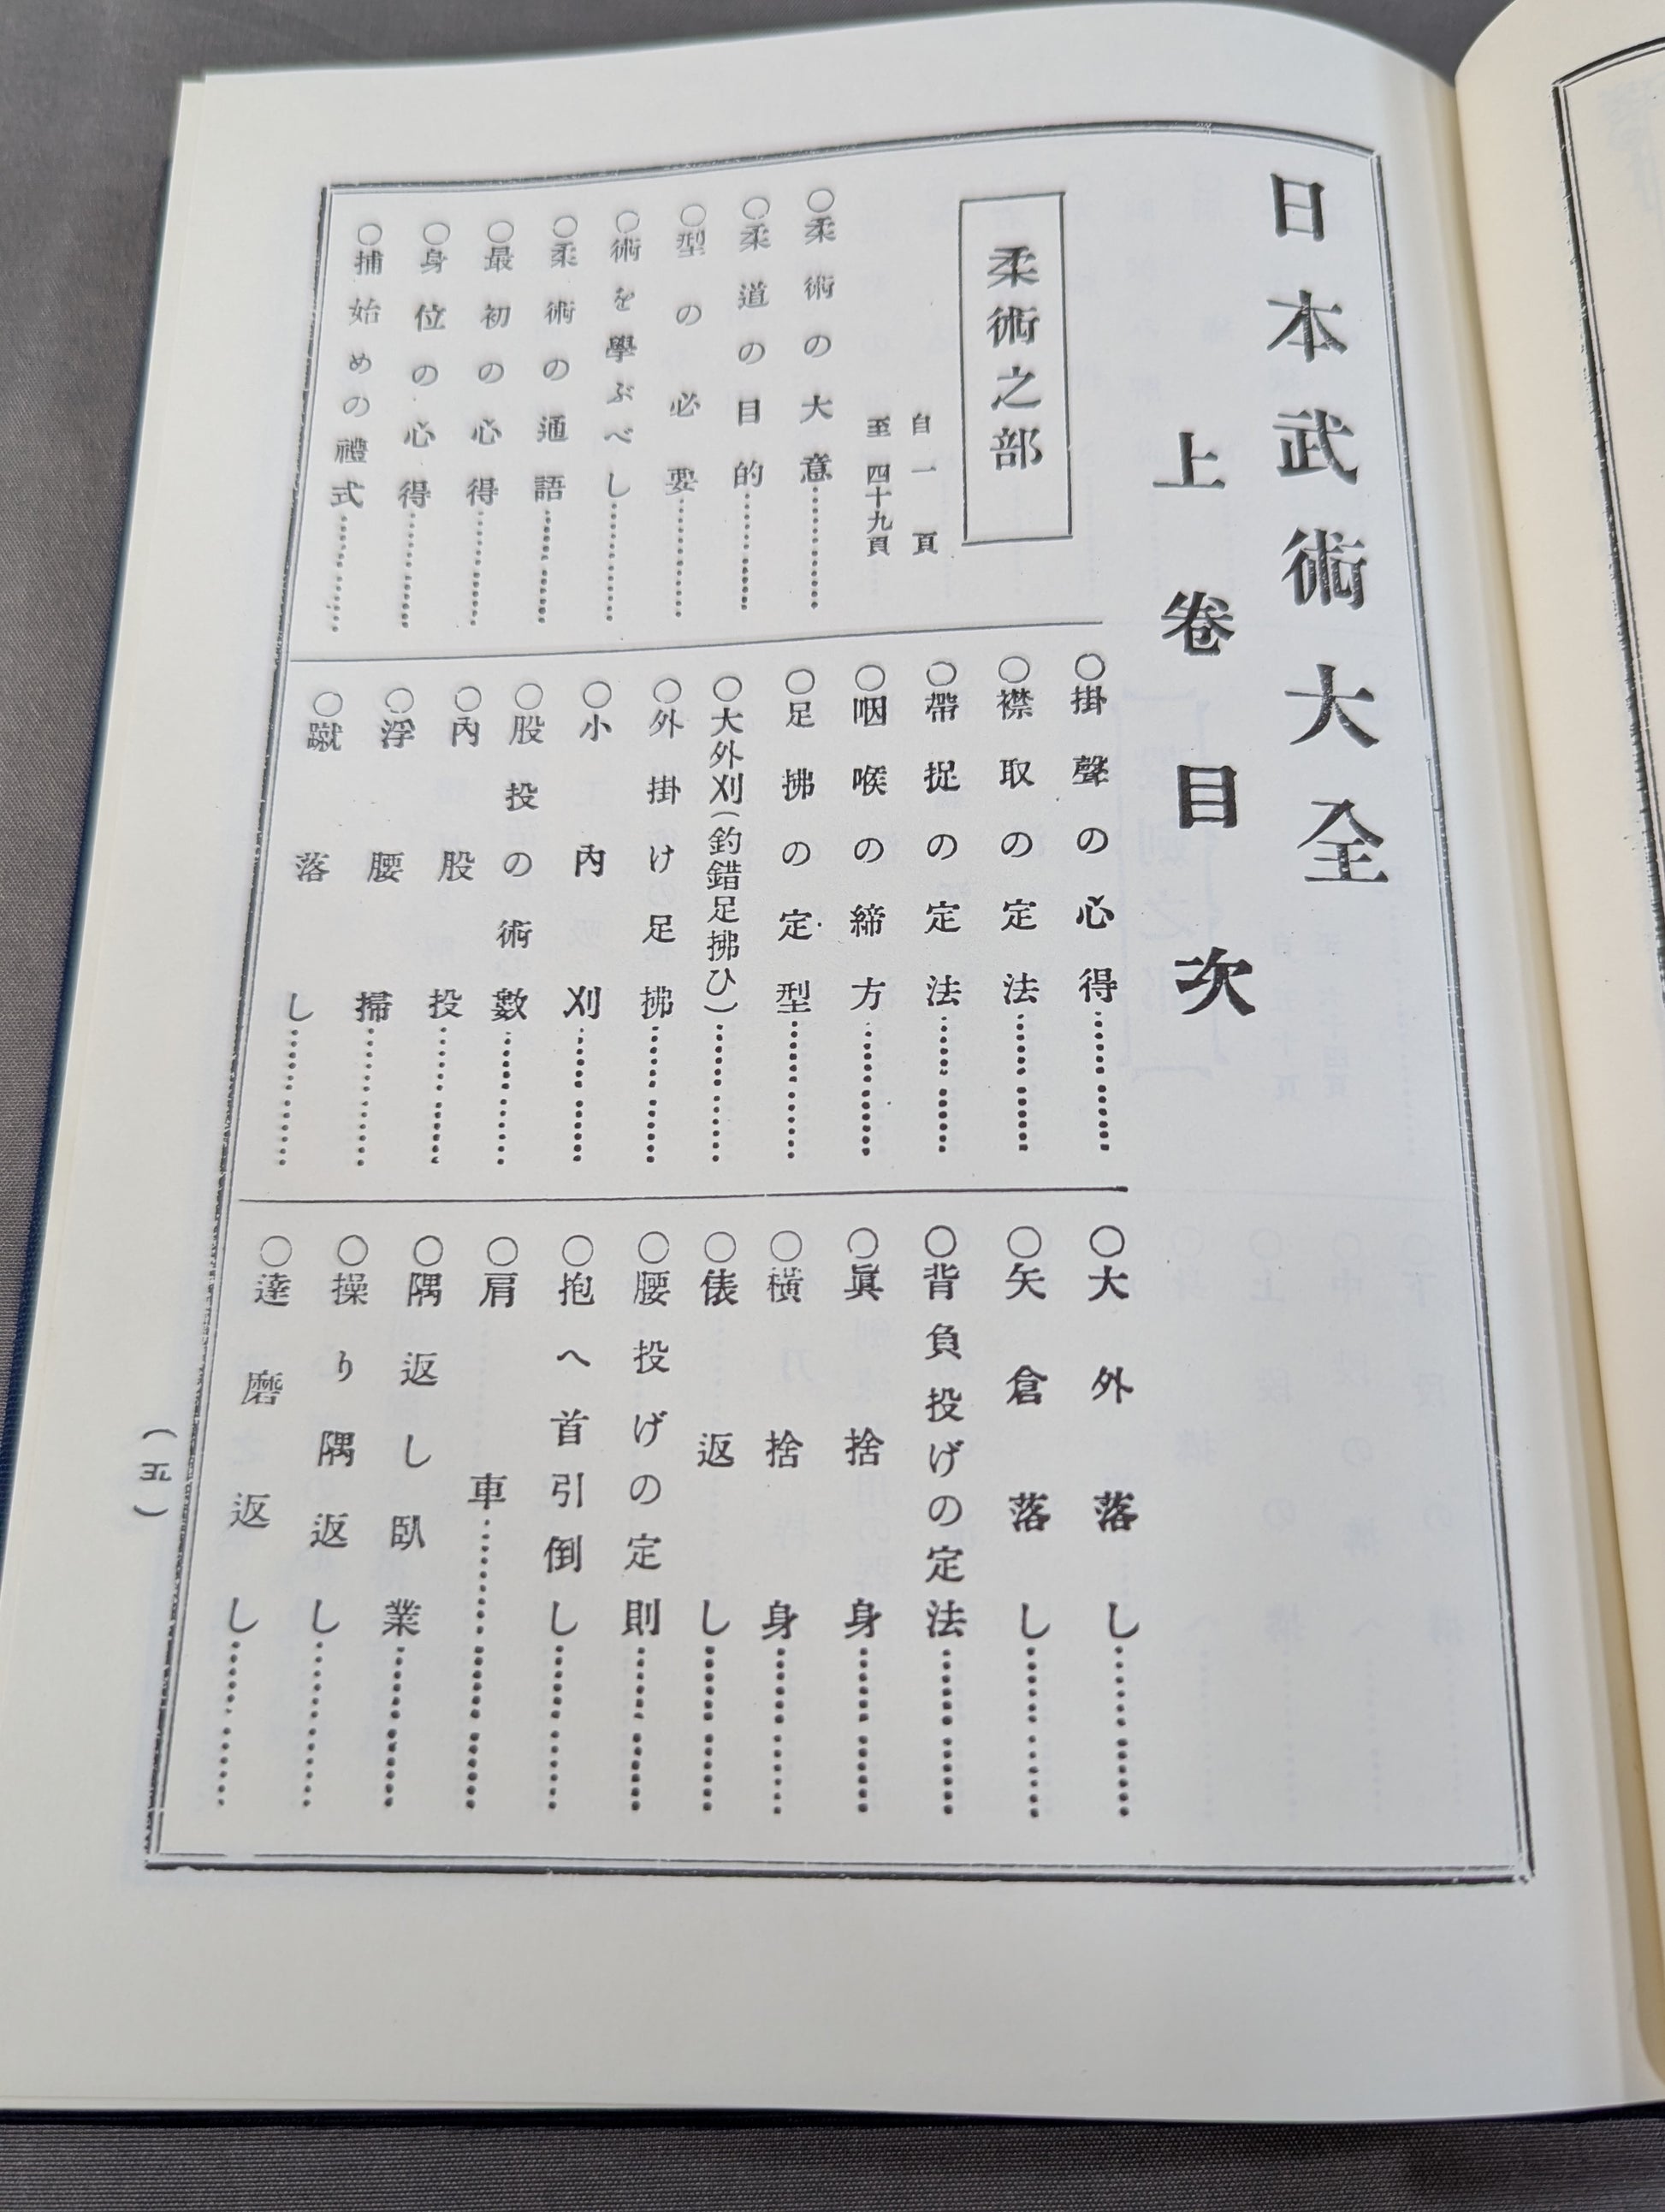 日本武術大全
上卷目次
柔術之部
自一頁
至四十九頁
○柔術の大意…………
○柔道の目的…………
○型の必要…………
○術を學ぶべし…………
○柔術の通語…………
○最初の心得…………
○身位の心得…………
○捕始めの禮式…………
○掛聲の心得…………
○襟取の定法…………
○帶捉の定法…………
○咽喉の締方…………
○足拂の定型…………
○大外刈(釣錯足拂ひ)…………
○外掛け足拂…………
○小內刈…………
○股投の術數…………
○內股投…………
○浮腰掃…………
○蹴落し…………
○大外落し…………
○矢倉落し…………
○背負投げの定法…………
○眞捨身…………
○橫捨身…………
○俵返し…………
○腰投げの定則…………
○抱へ首引倒し…………
○肩車…………
○隅返し臥業…………
○操り隅返し…………
○達磨返し…………
(五)